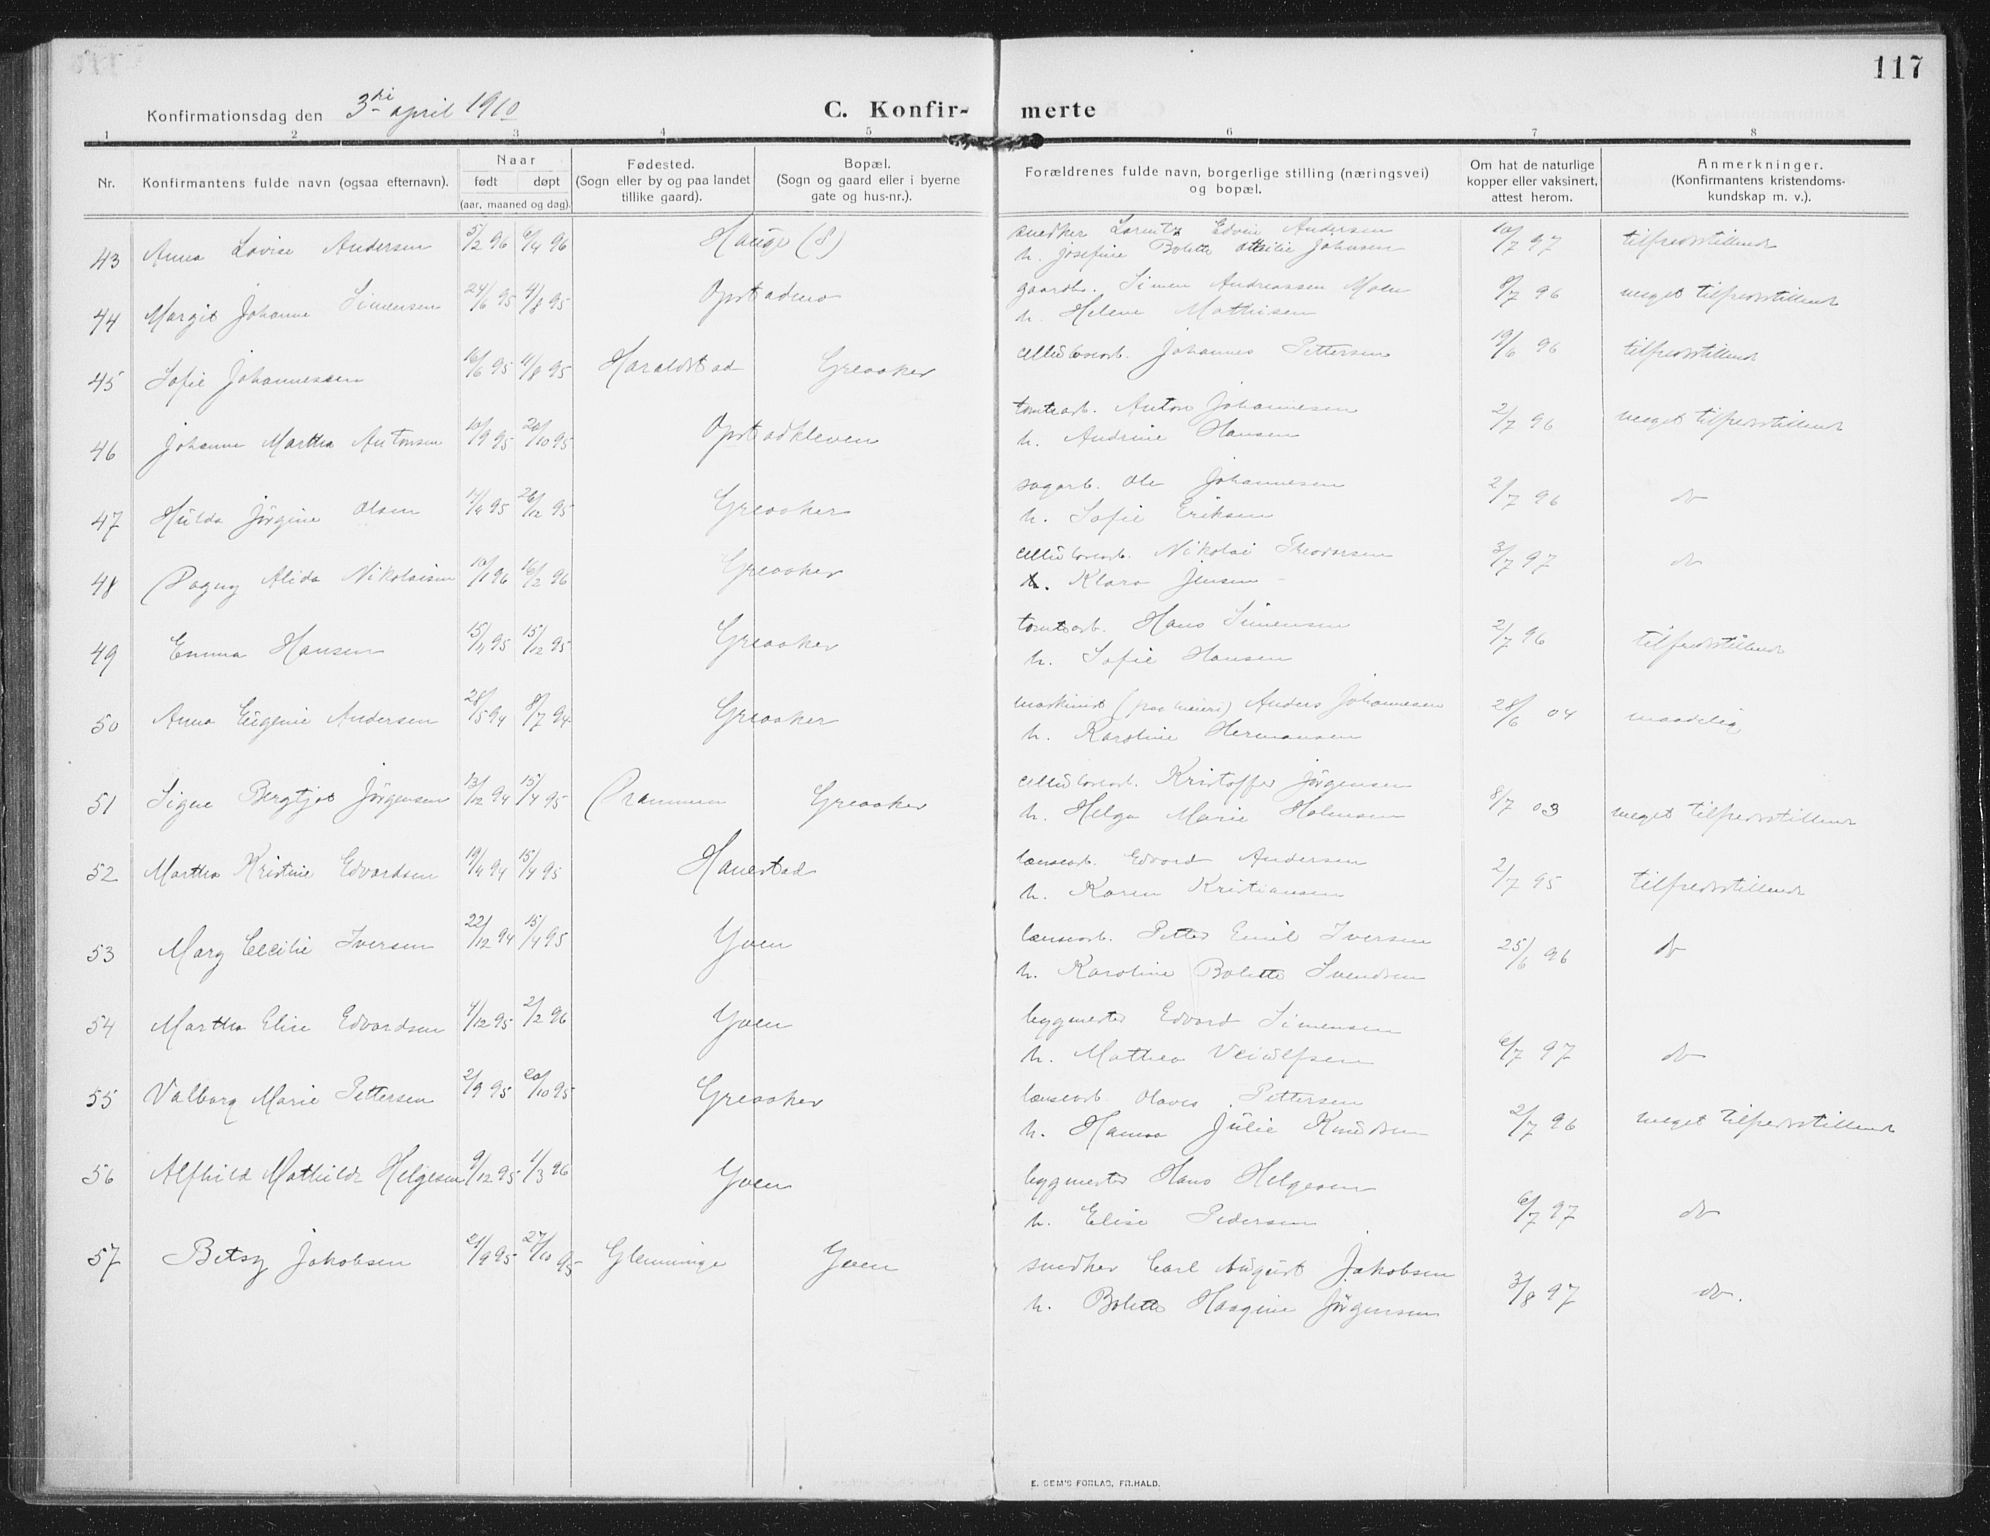 117
Konfirmationsdag den 3die april 1910 C. Konfirmerte
1 2 3 4 5 6 7 8
Nr. Konfirmantens fulde navn (ogsaa efternavn). Naar født døpt (aar, maaned og dag). Fødested. (Sogn eller by og paa landet tillike gaard). Bopæl. (Sogn og gaard eller i byerne gate og hus-nr.). Forældrenes fulde navn, borgerlige stilling (næringsvei) og bopæl. Om hat de naturlige kopper eller vaksinert, attest herom. Anmerkninger. (Konfirmantens kristendomskundskap m. v.).
43 Anna Lovise Andersen 5/2 96 6/4 96 Hauge (S) snedker Lorentz Edvin Andersen 10/7 97 tilfredsstillende
h. Josefine Bolette Ottilie Johnsen
44 Margit Johanne Simensen 24/6 95 4/8 95 Opstadmo gaardb. Simen Andreassen Moen 8/7 96 meget tilfredsstillende
h. Helene Mathisen
45 Sofie Johannessen 16/6 95 4/8 95 Haraldstad Greaaker cellulosearb. Johannes Pettersen 19/6 96 tilfredsstillende
46 Johanne Martha Antonsen 10/9 95 20/10 95 Opstadkleven tomtearb. Anton Johannesen 2/7 96 meget tilfredsstillende
h. Andrine Hansen
47 Hulda Jørgine Olsen 4/4 95 26/12 95 Greaaker sagarb. Ole Johannesen 2/7 96 do
h. Sofie Eriksen
48 Dagny Alida Nikolaisen 10/1 96 16/2 96 Greaaker cellulosearb. Nikolai Theodorsen 3/7 97 do
h. Klara Jensen
49 Emma Hansen 15/4 95 15/12 95 Greaaker tomtearb. Hans Simensen 2/7 96 tilfredsstillende
h. Sofie Hansen
50 Anna Eugenie Andersen 28/5 94 8/7 94 Greaaker maskinist (paa meieri) Anders Johannesen 28/6 04 maadelig
h. Karoline Hermansen
51 Signe Bergljot Jørgensen 13/12 94 15/4 95 Drammen Greaaker cellulosearb. Kristoffer Jørgensen 8/7 03 meget tilfredsstillende
h. Helga Marie Halvorsen
52 Martha Kristine Edvardsen 19/4 94 15/4 95 Hanestad lænsearb. Edvard Andersen 2/7 95 tilfredsstillende
h. Karen Kristiansen
53 Mary Cecilie Iversen 22/12 94 15/4 95 Yven lænsearb. Petter Emil Iversen 25/6 96 do
h. Karoline Bolette Svendsen
54 Martha Elise Edvardsen 4/12 95 2/2 96 Yven bygmester Edvard Simensen
h. Mathea Veiulfsen 6/7 97 do
55 Valborg Marie Pettersen 2/9 95 20/10 95 Greaaker lænsearb. Olaves Pettersen
h. Hanna Julie Knudsen 2/7 96 meget tilfredsstillende
56 Alfhild Mathilde Helgesen 9/12 95 1/3 96 Yven bygmester Hans Helgesen
h. Elise Pedersen 6/7 97 do
57 Betsy Jakobsen 21/9 95 27/10 95 Glemminge Yven snedker Carl August Jakobsen
h. Bolette Haagine Jørgensen 3/8 97 do.
E. SEM'S FORLAG, FR.HALD.